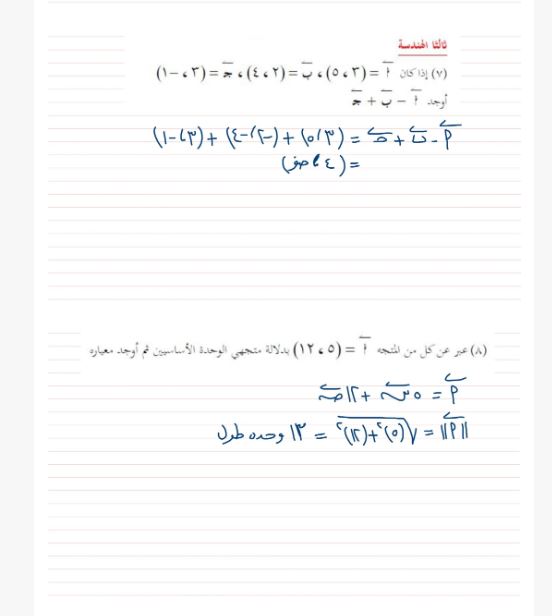 ثالثا الهندسة
(٧) إذا كان أ = (٣ ، ٥) ، ب = (٢ ، ٤) ، جـ = (٣ ، -١)
أوجد أ - ب + جـ
أ - ب + جـ = (٣، ٥) + (-٢، -٤) + (٣، -١)
= (٤، صفر)
(٨) عبر عن كل من المتجه أ = (٥ ، ١٢) بدلالة متجهي الوحدة الأساسيين ثم أوجد معياره
أ = ٥ س + ١٢ ص
||أ|| = √(٥)² + (١٢)² = ١٣ وحده طول